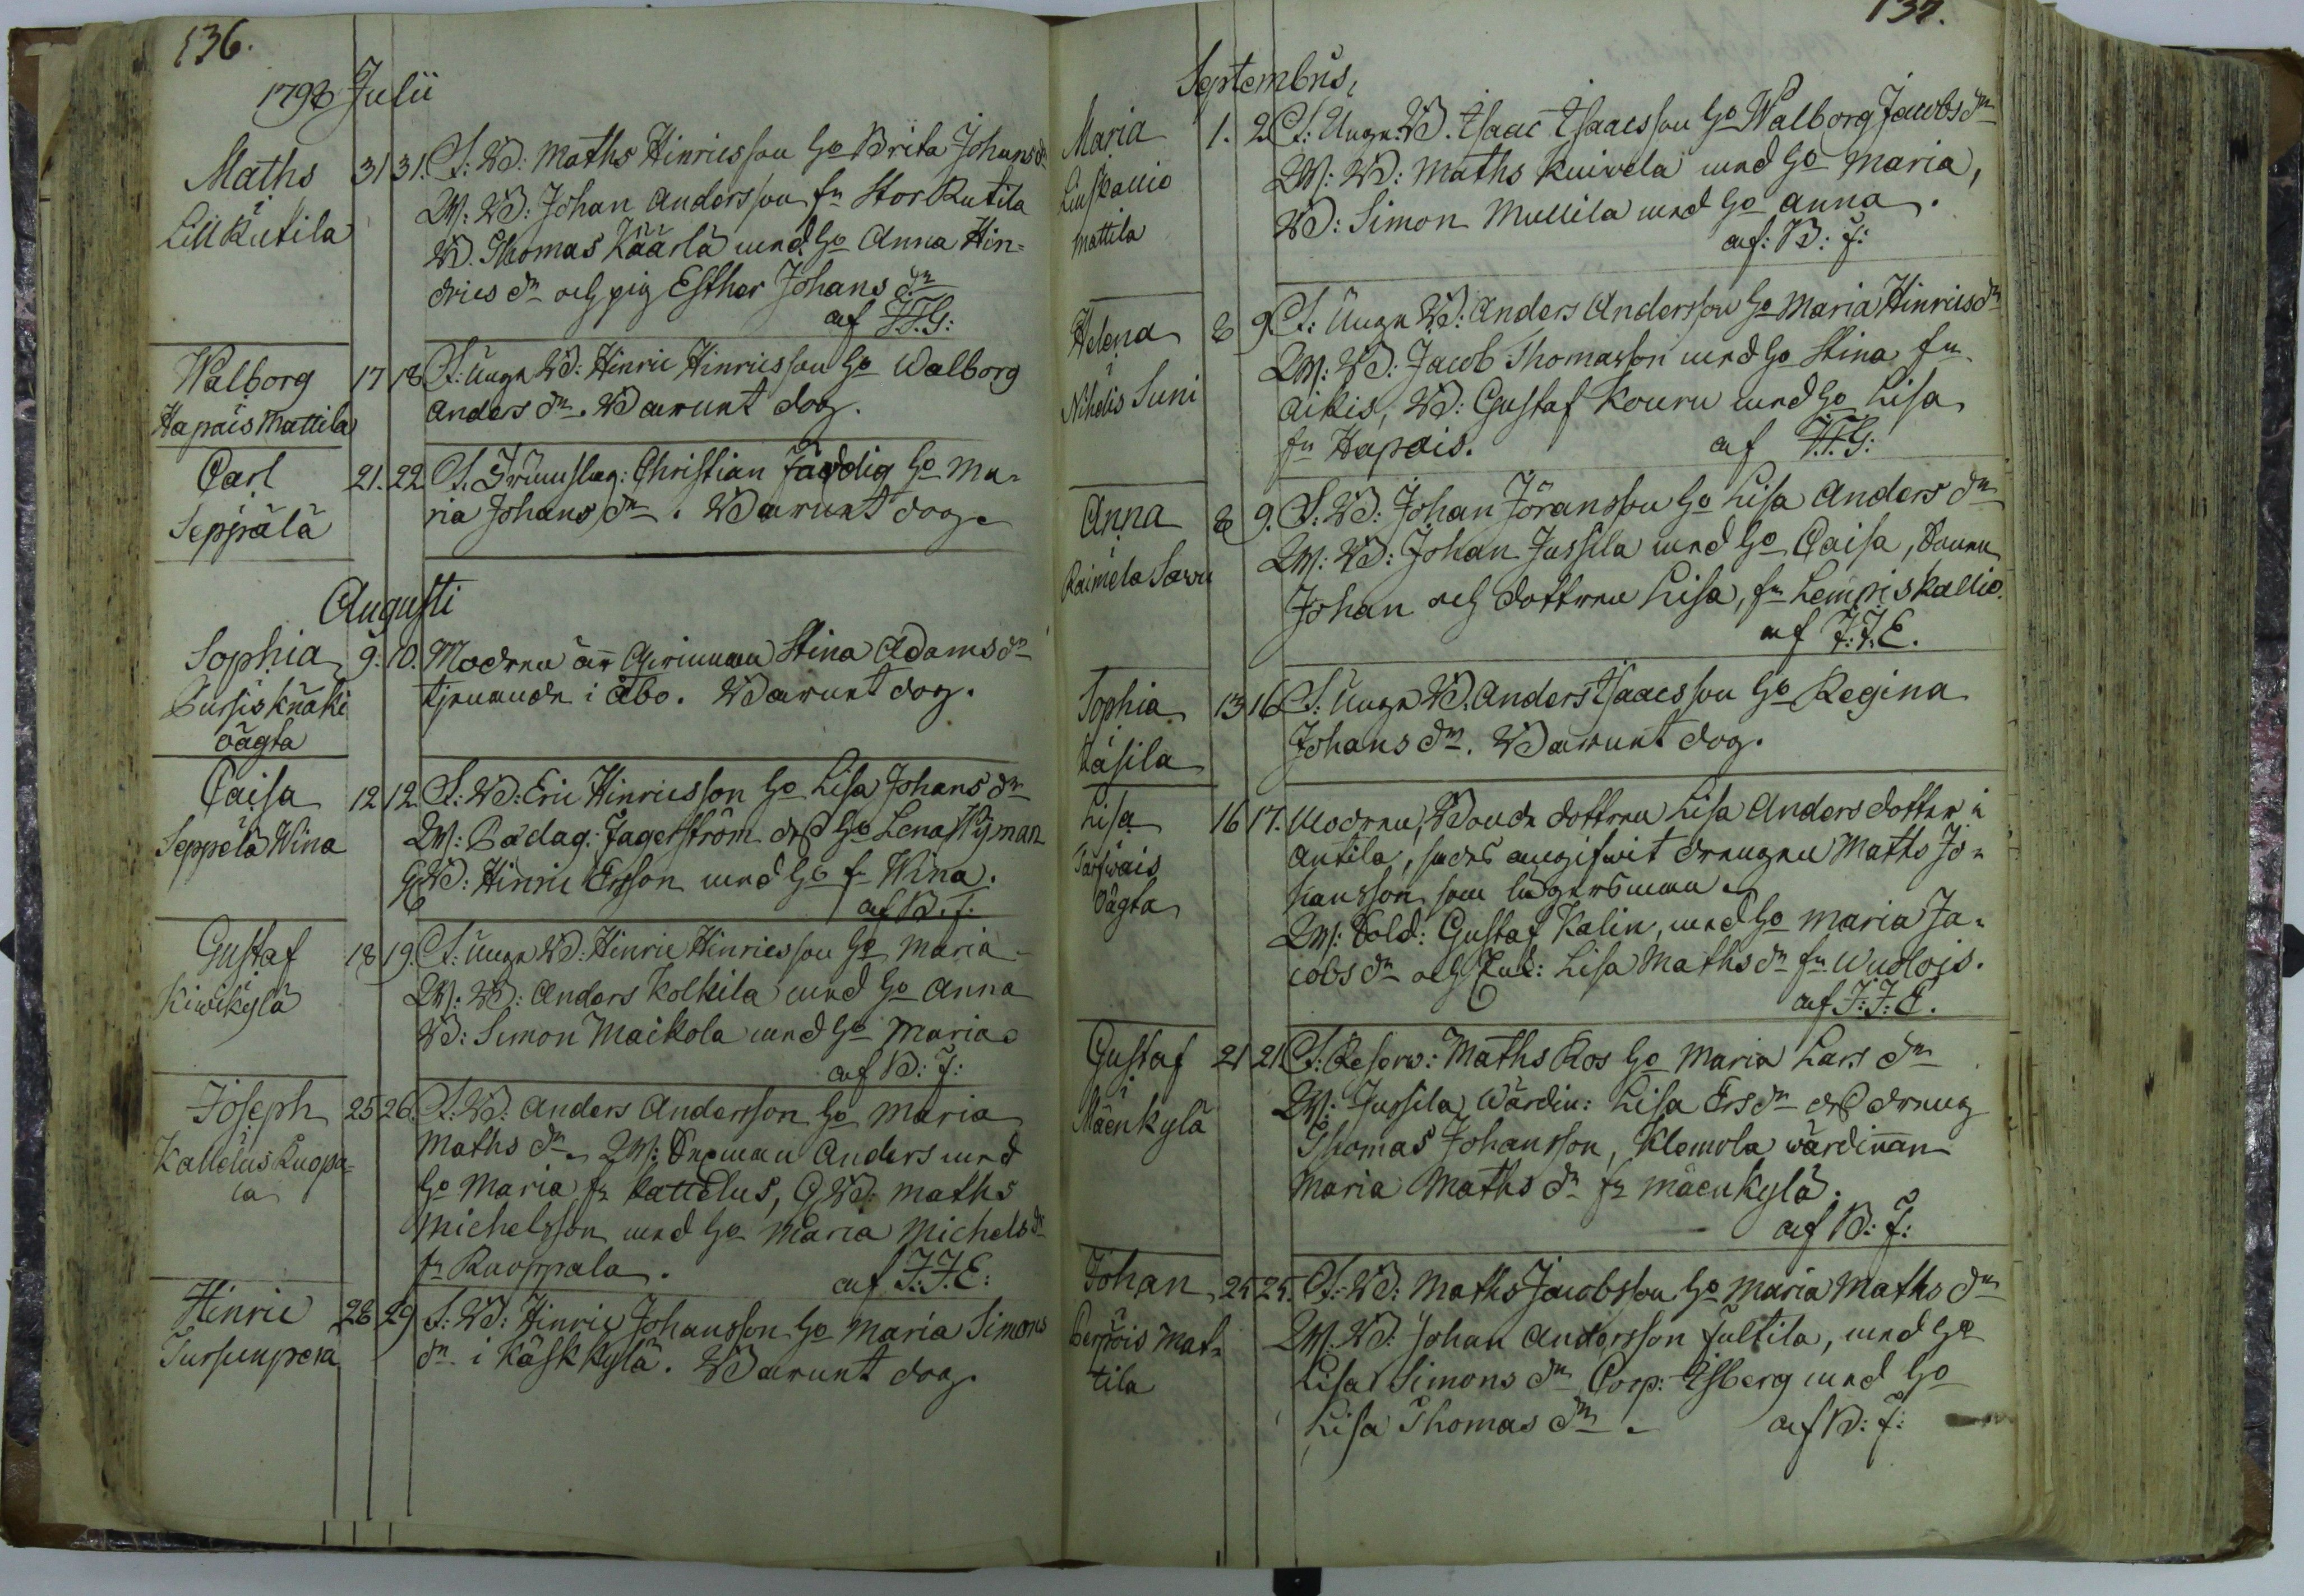 136.
1798 Julii
Maths 31 31. F: B: Maths Hinricsson Ho Brita Johans dr
i
Lill Kutila
W: B: Johan Andersson fr Stor Kutila
B. Thomas Käärlä med Ho Anna Hin-
drics dr och pig Esther Johans dr
af J.T.G:
Walborg 17 18 F: Unge B: Hinric Hinricsson Ho Walborg
i
Hapais Mattila
Anders dr. Barnet dog.
Carl 21. 22. F. Christian Ho Ma-
i
Seppälä
ria Johans dr. Barnet dog.
Augusti
Sophia 9. 10. Modren är Qwinnan Stina Adams dr
tjenande i Åbo. Barnet dog.
ägta
Caisa 12 12. F: B: Eric Hinricsson Ho Lisa Johans dr
i
Seppälä Wina
W: Pädag: Jagerström och Ho Lena Wijman
GB: Hinric Ersson med Ho fr Wina.
af B. F:
Gustaf 18 19. F: Unge B: Hinric Hinricsson Ho Maria
i
Kiwikylä
W: B: Anders Kolkila med Ho Anna
B: Simon Maikola med Ho Maria
af B: F:
Joseph 25 26. F: B: Anders Andersson Ho Maria
i
Kallelus Ruopa-
la
Maths dr. W: Anders med
Ho Maria fr Kallelus, GB: Maths
Michelsson med Ho Maria Michels dr
fr Ruoppala.
af J.J.E:
Hinric 28 29 F: B: Hinric Johansson Ho Maria Simons
i
Tursunperä
dr i Käskkylä. Barnet dog.
137.
Septembris,
Maria 1. 2. F: Unge B. Isaac Isaacsson Ho Walborg Jacobs dr
i
Mattila
W: B: Maths Kuivela med Ho Maria,
B: Simon Mullila med Ho Anna.
af: B: F:
Helena 8 9. F: Unge B: Anders Andersson Ho Maria Hinrics dr
i
Niholis Suni
W: B: Jacob Thomasson med Ho Stina fr
Aikis, B: Gustaf Kouru med Ho Lisa
fr Hapais.
af J.T.G:
Anna 8 9. F: B: Johan Jöransson Ho Lisa Anders dr
i
Raimela Sawu
W: B: Johan Jussila med Ho Caisa, Sonen
Johan och Dottren Lisa, fr Lempiskallio.
af J.J.E.
Sophia 13 16 F: Unge B. Anders Isaacsson Ho Regina
i
Käsila
Johans dr. Barnet dog.
Lisa 16 17. Modren, Bonde dottren Lisa Anders dotter i
i
Järwais
Oägta
Antila, som angifwit drengen Maths Jo-
hansson som lägersman
W: Sold: Gustaf Kalin, med Ho Maria Ja-
cobs dr och Enk: Lisa Maths dr fr Wuolois.
af J: J: E.
Gustaf 21 21. F: Reserv: Maths Ros Ho Maria Lars dr
i
Mäenkylä
W: Jussila Wärdin: Lisa Ers dr och dreng
Thomas Johansson, Klemola wärdinnan
Maria Maths dr fr Mäenkylä.
af B: F:
Johan 25 25. F: B: Maths Jacobsson Ho Maria Maths dr
i
Perpöis Mat-
tila
W: B: Johan Andersson Jultila, med Ho
Lisa Simons dr Corp: Isberg med Ho
Lisa Thomas dr.
af B: F: